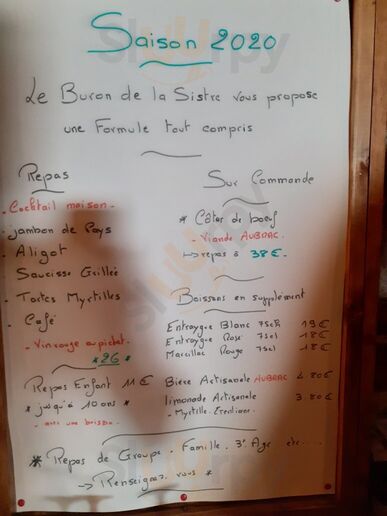 Saison 2020
Le Buron de la Sistre vous propose
une Formule tout compris
Repas
- Cocktail maison -
- Jambon de Pays
- Aligot
Saucisse Grillée
- Tartes Myrtilles
- Café
- Vin rouge au pichet.
* 26 *
Repas Enfant 11 €
* jusqu'à 10 ans *
- avec une boisson
Sur Commande
* Côtes de boeuf
- Viande AUBRAC
↳ repas à 38 €
Boissons en supplément
Entraygue Blanc 75cl 19 €
Entraygue Rosé 75cl 18 €
Marcillac Rouge 75cl 18 €
Bière Artisanale AUBRAC 4.80 €
limonade Artisanale 3.80 €
- Myrtille.
* Repas de Groupe - Famille - 3° Age etc....
→ Renseignez vous *